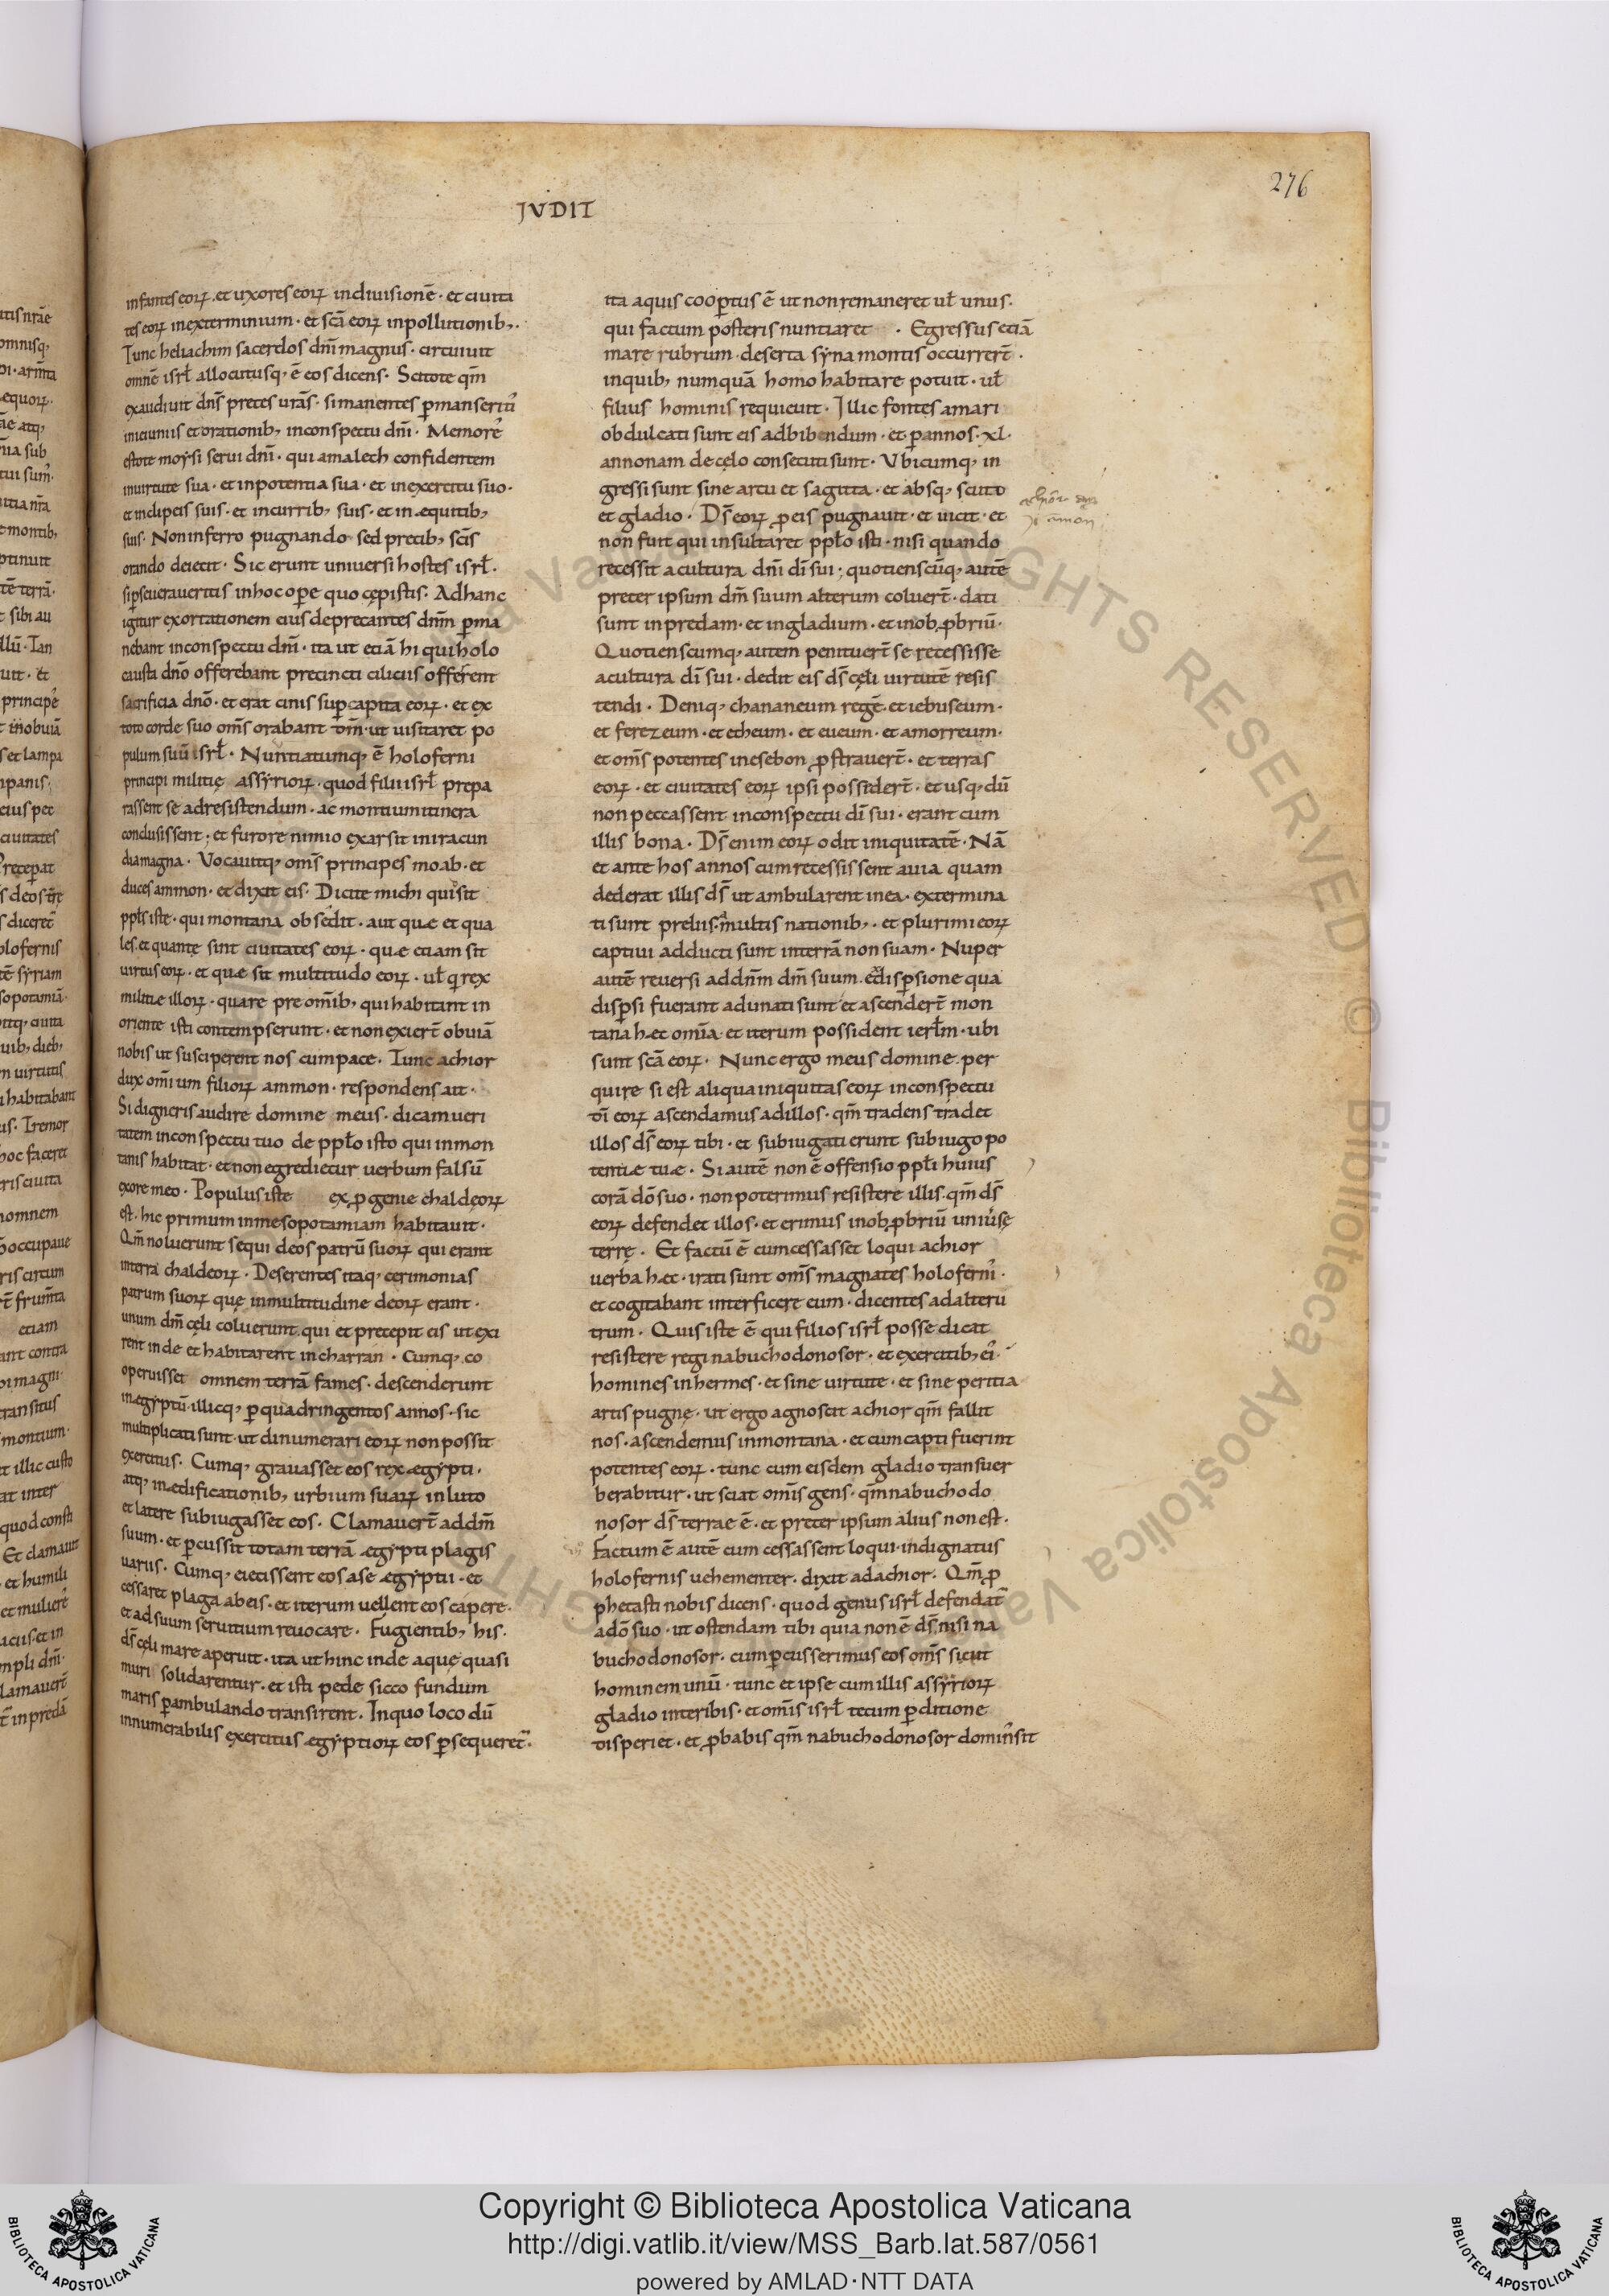 276
JVDIT
infantes eoꝝ. et uxores eoꝝ indiuisionē · et ciuita
tes eoꝝ inexterminium · et scā eoꝝ inpollutionib;.
Tunc heliachim sacerdos dn̄i magnus · circuiuit
omnē isrł allocutusq; ē eos dicens · Scitote qm̄
exaudiuit dn̄s preces urās · si manentes ꝑmanseriti᷒
inieiuniis et orationib; inconspectu dn̄i · Memore᷒
estote moysi serui dn̄i · qui amalech confidentem
inuirtute sua · et inpotentia sua · et inexercitu suo ·
et inclipeis suis · et incurrib; suis · et in equitib;
suis · Non inferro pugnando sed precib; sc̄is
orando deiecit · Sic erunt uniuersi hostes isrł ·
si ꝑseueraueritis inhoc opere quo cepistis · Adhanc
igitur exortationem eius deprecantes dnm̄ ꝑma
nebant inconspectu dn̄i · ita ut etiā hi qui holo
causta dn̄o offerebant precincti ciliciis offerent
sacrificia dn̄o · et erat cinis suꝑ capita eoꝝ · et ex
toto corde suo om̄s orabant dm̄ · ut uisitaret po
pulum suū isrł · Nuntiatumq; ē holoferni
principi militię assyrioꝝ · quod filii isrł prepa
rassent se adresistendum · ac montium itinera
conclusissent · et furore nimio exarsit iniracun
dia magna · Vocauitq; om̄s principes moab · et
duces ammon · et dixit eis · Dicite michi quis sit
ppłs iste · qui montana obsedit · aut quæ et qua
les et quantę sint ciuitates eoꝝ · quæ etiam sit
uirtus eoꝝ · et quæ sit multitudo eoꝝ · uł q rex
militiæ illoꝝ · quare pre om̄ib; qui habitant in
oriente isti contempserunt · et non exiert̄ obuiā
nobis ut susciperent nos cum pace · Tunc achior
dux omium filioꝝ ammon · respondens ait ·
Si digneris audire domine meus · dicam ueri
tatem inconspectu tuo de ppło isto qui inmon
tanis habitat · et non egredietur uerbum falsū
exore meo · Populus iste ex ꝓgenie chaldęoꝝ
est · hic primum inmesopotamiam habitauit ·
Qm̄ noluerunt sequi deos patrū suoꝝ qui erant
interra chaldeoꝝ · Deserentes itaq; cerimonias
patrum suoꝝ quę inmultitudine deoꝝ erant ·
unum dm̄ cęli coluerunt · qui et precepit eis ut exi
rent inde et habitarent incharran · Cumq; co
operuisset omnem terrā fames · descenderunt
inægyptū · illicq; ꝑ quadringentos annos · sic
multiplicati sunt · ut dinumerari eoꝝ non possit
exercitus · Cumq; grauasset eos rex ægypti ·
atq; inædificationib; urbium suaꝝ inluto
et latere subiugasset eos · Clamauert̄ addm̄
suum · et ꝑcussit totam terrā ægypti plagis
uariis · Cumq; eiecissent eos ase ægyptii · et
cessaret plaga abeis · et iterum uellent eos capere ·
et ad suum seruitium reuocare · Fugientib; his ·
ds̄ cęli mare aperuit · ita ut hinc inde aquę quasi
muri solidarentur · et isti pede sicco fundum
maris ꝑambulando transirent · Inquo loco dū
innumerabilis exercitus ægyptioꝝ eos ꝑsequeret᷑ ·
ita aquis cooꝑtus ē ut non remaneret uł unus ·
qui factum posteris nuntiaret · Egressus etiā
mare rubrum · deserta syna montis occurrert̄ ·
inquib; numquā homo habitare potuit · uł
filius hominis requieuit · Illic fontes amari
obdulcati sunt eis adbibendum · et ꝑ annos · xl ·
annonam decęlo consecuti sunt · Vbicumq; in
gressi sunt sine arcu et sagitta · et absq; scuto
et gladio · Ds̄ eoꝝ ꝓ eis pugnauit · et uicit · et
non fuit qui insultaret ppło isti · nisi quando
recessit acultura dn̄i di̅ sui ; quotienscūq; autē
preter ipsum dm̄ suum alterum coluert̄ · dati
sunt inpredam · et ingladium · et inobꝓbriū ·
Quotienscumq; autem penituert̄ se recessisse
acultura di̅ sui · dedit eis ds̄ cęli uirtutē resis
tendi · Deniq; chananeum regē · et iebuseum ·
et ferezeum · et etheum · et eueum · et amorreum ·
et om̄s potentes inesebon ꝓstrauert̄ · et terras
eoꝝ · et ciuitates eoꝝ ipsi possidert̄ · et usq; dū
non peccassent inconspectu di̅ sui · erant cum
illis bona · Ds̄ enim eoꝝ odit iniquitatē · Nā
et ante hos annos cum recessissent auia quam
dederat illis ds̄ ut ambularent inea · extermina
ti sunt preliis multis nationib; · et plurimi eoꝝ
captiui adducti sunt interrā non suam · Nuper
autē reuersi addnm̄ dm̄ suum · exdisꝑsione qua
disꝑsi fuerant adunati sunt et ascendert̄ mon
tana hæc omīa · et iterum possident ierłm · ubi
sunt scā eoꝝ · Nunc ergo meus domine per
quire si est aliqua iniquitas eoꝝ inconspectu
di̅ eoꝝ ascendamus adillos · qm̄ tradens tradet
illos ds̄ eoꝝ tibi · et subiugati erunt subiugo po
tentiæ tuæ · Si autē non ē offensio ppłi huius
corā dō suo · non poterimus resistere illis · qm̄ ds̄
eoꝝ defendet illos · et erimus inobꝓbriū uniu͛sę
terrę · Et factū ē cum cessasset loqui achior
uerba hæc · irati sunt om̄s magnates holoferni᷒ ·
et cogitabant interficere eum · dicentes adalteru
trum · Quis iste ē qui filios isrł posse dicat
resistere regi nabuchodonosor · et exercitib; ei᷒ ·
homines inhermes · et sine uirtute · et sine peritia
artis pugnę · ut ergo agnoscat achior qm̄ fallit
nos · ascendemus inmontana · et cum capti fuerint
potentes eoꝝ · tunc cum eisdem gladio transuer
berabitur · ut sciat om̄is gens · qm̄ nabuchodo
nosor ds̄ terrae ē · et preter ipsum alius non est ·
Factum ē autē cum cessassent loqui · indignatus
holofernis uehementer · dixit ad achior · Qm̄ ꝓ
phetasti nobis dicens · quod genus isrł defendat᷑
adō suo · ut ostendam tibi quia non ē ds̄ nisi na
buchodonosor · cum ꝑcusserimus eos om̄s sicut
hominem unū · tunc et ipse cum illis assyrioꝝ
gladio interibis · et om̄is isrł tecum ꝑditione
disperiet · et ꝓbabis qm̄ nabuchodonosor domin᷒ sit
Copyright © Biblioteca Apostolica Vaticana
http://digi.vatlib.it/view/MSS_Barb.lat.587/0561
powered by AMLAD·NTT DATA
BIBLIOTECA APOSTOLICA VATICANA
BIBLIOTECA APOSTOLICA VATICANA